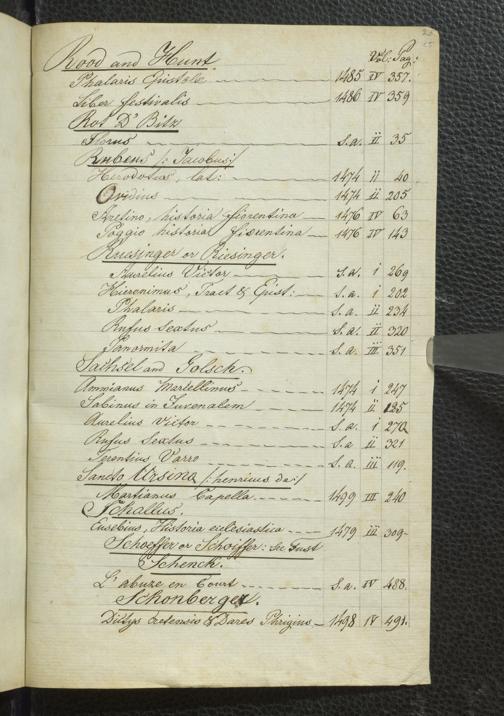 Vol: Pag:
Rood and Hunt.
Phalaris Epistole 1485 IV 357.
Liber festivalis 1486 IV 359
Rot D' Bitz
Florus s.a. ii 35
Rubeus /: Jacobus:/
Herodotus, lat: 1474 ii 40
Ovidius 1474 ii 205
Aretino, historia fiorentina 1476 IV 63
Poggio historia fiorentina 1476 IV 143
Ruisinger or Riesinger.
Aurelius Victor s.a. i 269
Hieronimus, Tract & Epist: s.a. i 202
Phalaris s.a. ii 234
Rufus Sextus s.a. ii 320
Panormita s.a. iii 351
Sachsel and Golsch.
Ammianus Martellinus 1474 i 247
Sabinus in Juvenalem 1474 ii 125
Aurelius Victor s.a. i 270
Rufus Sextus s.a ii 321
Terentius Varro s.a. iii 119.
Sancto Ursino /: henrius de:/
Martianus Capella 1499 III 240
Schallus.
Eusebius, Historia eclesiastica 1479 iii 309-
Schoeffer or Schoiffer: See Fust
Schenck.
L'abuze en Court s.a. IV 488.
Schonberger.
Dictys Cretensis & Dares Phrigius 1498 IV 491.